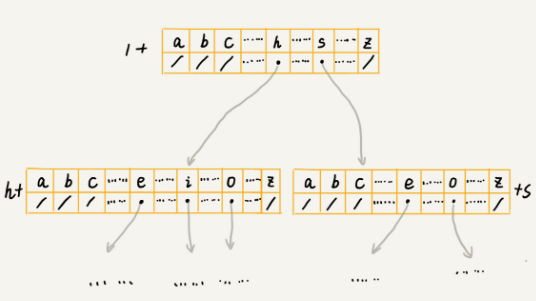 a b c ...... h ...... s ...... z
/ + / / / ...... • ...... • ...... /
a b c ...... e ...... i ...... o ...... z
h+ / / / ...... • ...... • ...... • ...... /
a b c ...... e ...... o ...... z
/ / / ...... • ...... • ...... / +s
...... ...... ...... ...... ......